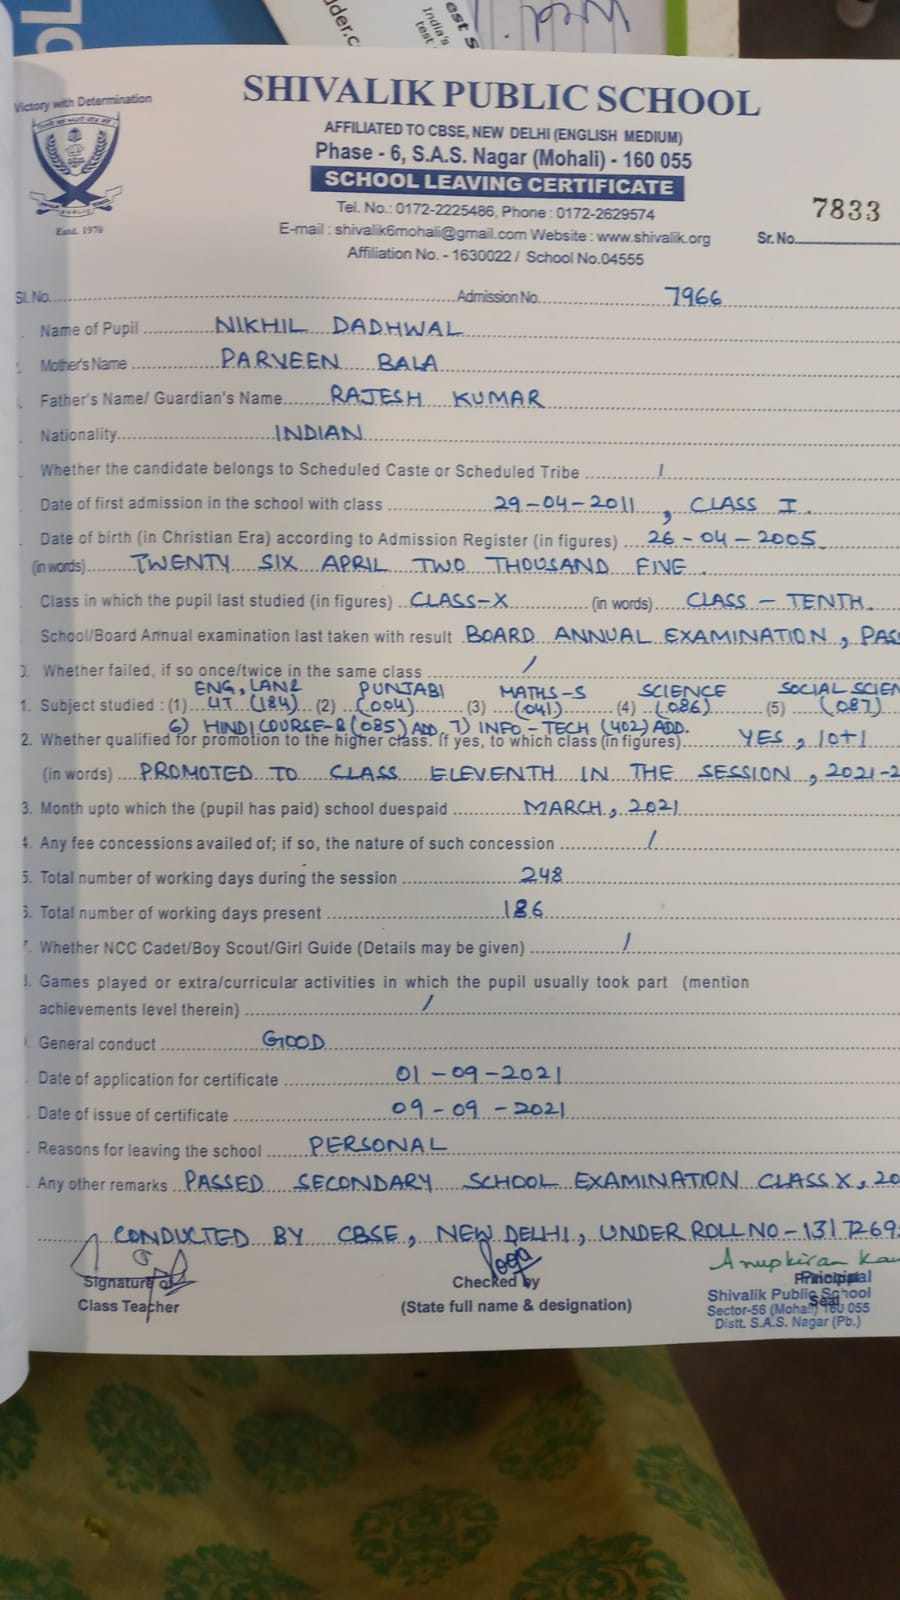 der.c
est S
India's
test
Victory with Determination
SHIVALIK PUBLIC SCHOOL
AFFILIATED TO CBSE, NEW DELHI (ENGLISH MEDIUM)
Phase - 6, S.A.S. Nagar (Mohali) - 160 055
SCHOOL LEAVING CERTIFICATE
Tel. No.: 0172-2225486, Phone : 0172-2629574
7833
E-mail : shivalik6mohali@gmail.com Website : www.shivalik.org
Sr. No.
Affiliation No. - 1630022 / School No.04555
PUBLIC
Estd. 1970
Sl. No. Admission No. 7966
Name of Pupil NIKHIL DADHWAL
Mother's Name PARVEEN BALA
Father's Name/ Guardian's Name RAJESH KUMAR
Nationality INDIAN
Whether the candidate belongs to Scheduled Caste or Scheduled Tribe /
Date of first admission in the school with class 29-04-2011, CLASS I.
Date of birth (in Christian Era) according to Admission Register (in figures) 26-04-2005
(in words) TWENTY SIX APRIL TWO THOUSAND FIVE.
Class in which the pupil last studied (in figures) CLASS-X (in words) CLASS - TENTH
School/Board Annual examination last taken with result BOARD ANNUAL EXAMINATION, PAS
Whether failed, if so once/twice in the same class /
ENG, LANG PUNJABI MATHS-S SCIENCE SOCIAL SCIEN
1. Subject studied : (1) LIT (184) (2) (004) (3) (041) (4) (086) (5) (087)
6) HINDI COURSE-B (085) ADD 7) INFO-TECH (402) ADD.
2. Whether qualified for promotion to the higher class. If yes, to which class (in figures) YES, 10+1
(in words) PROMOTED TO CLASS ELEVENTH IN THE SESSION, 2021-2
3. Month upto which the (pupil has paid) school duespaid MARCH, 2021
4. Any fee concessions availed of; if so, the nature of such concession /
5. Total number of working days during the session 248
6. Total number of working days present 186
Whether NCC Cadet/Boy Scout/Girl Guide (Details may be given) /
Games played or extra/curricular activities in which the pupil usually took part (mention
achievements level therein) /
General conduct GOOD
Date of application for certificate 01-09-2021
Date of issue of certificate 09-09-2021
Reasons for leaving the school PERSONAL
Any other remarks PASSED SECONDARY SCHOOL EXAMINATION CLASS X, 20
CONDUCTED BY CBSE, NEW DELHI, UNDER ROLL NO-1317269
Anupkiran Kau
Signature of Checked by Principal
Class Teacher (State full name & designation) Seal
Principal
Shivalik Public School
Sector-56 (Mohali) 160 055
Distt. S.A.S. Nagar (Pb.)